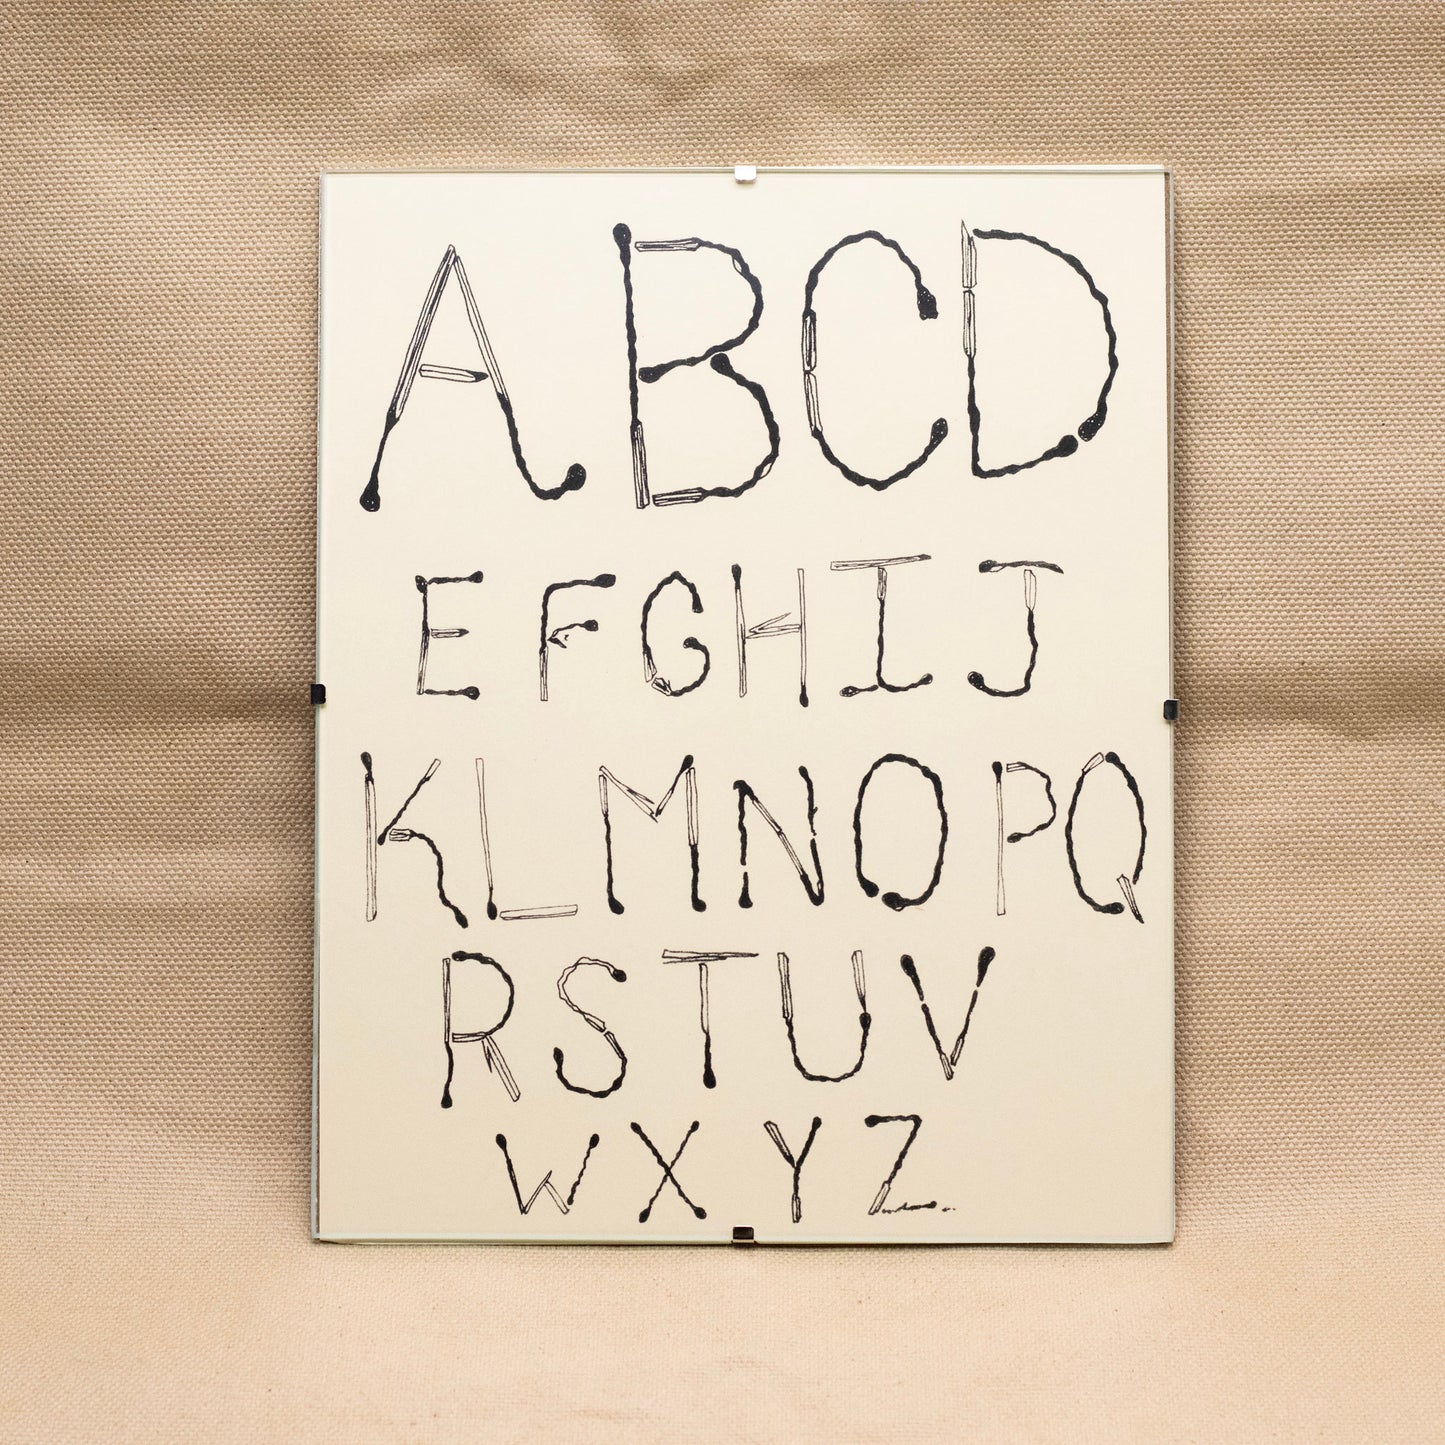 ABCD
EFGHIJ
KLMNOPQ
RSTUV
WXYZ